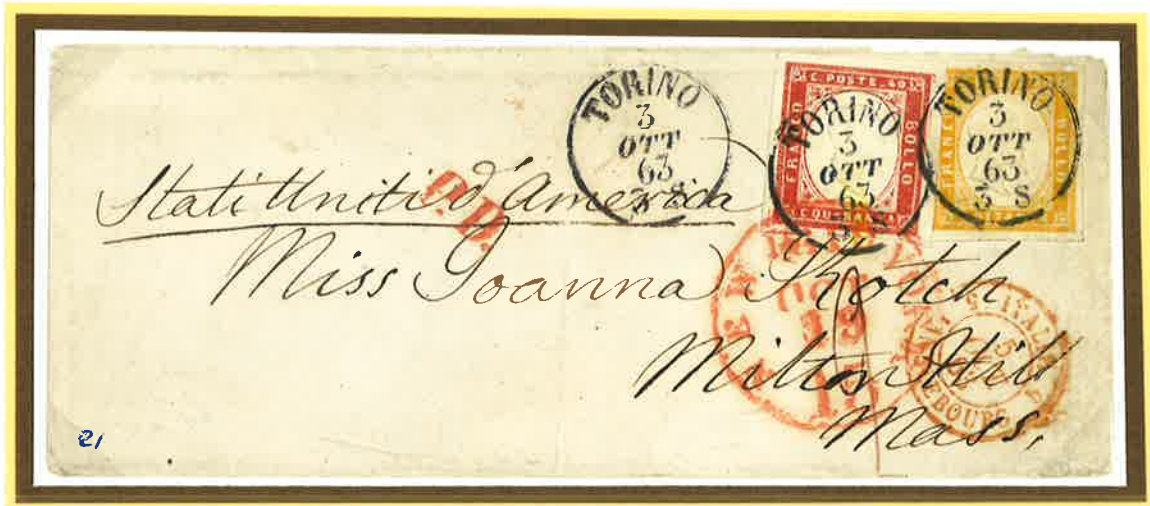 TORINO
3
OTT
63
3 S
C. POSTE. 40
FRANCO
BOLLO
C. QUARANTA
TORINO
3
OTT
63
3 S
FRANCO
BOLLO
TORINO
3
OTT
63
3 S
P.D.
Stati Uniti d'America
Miss Joanna Rotch
Milton Hill
Mass,
21